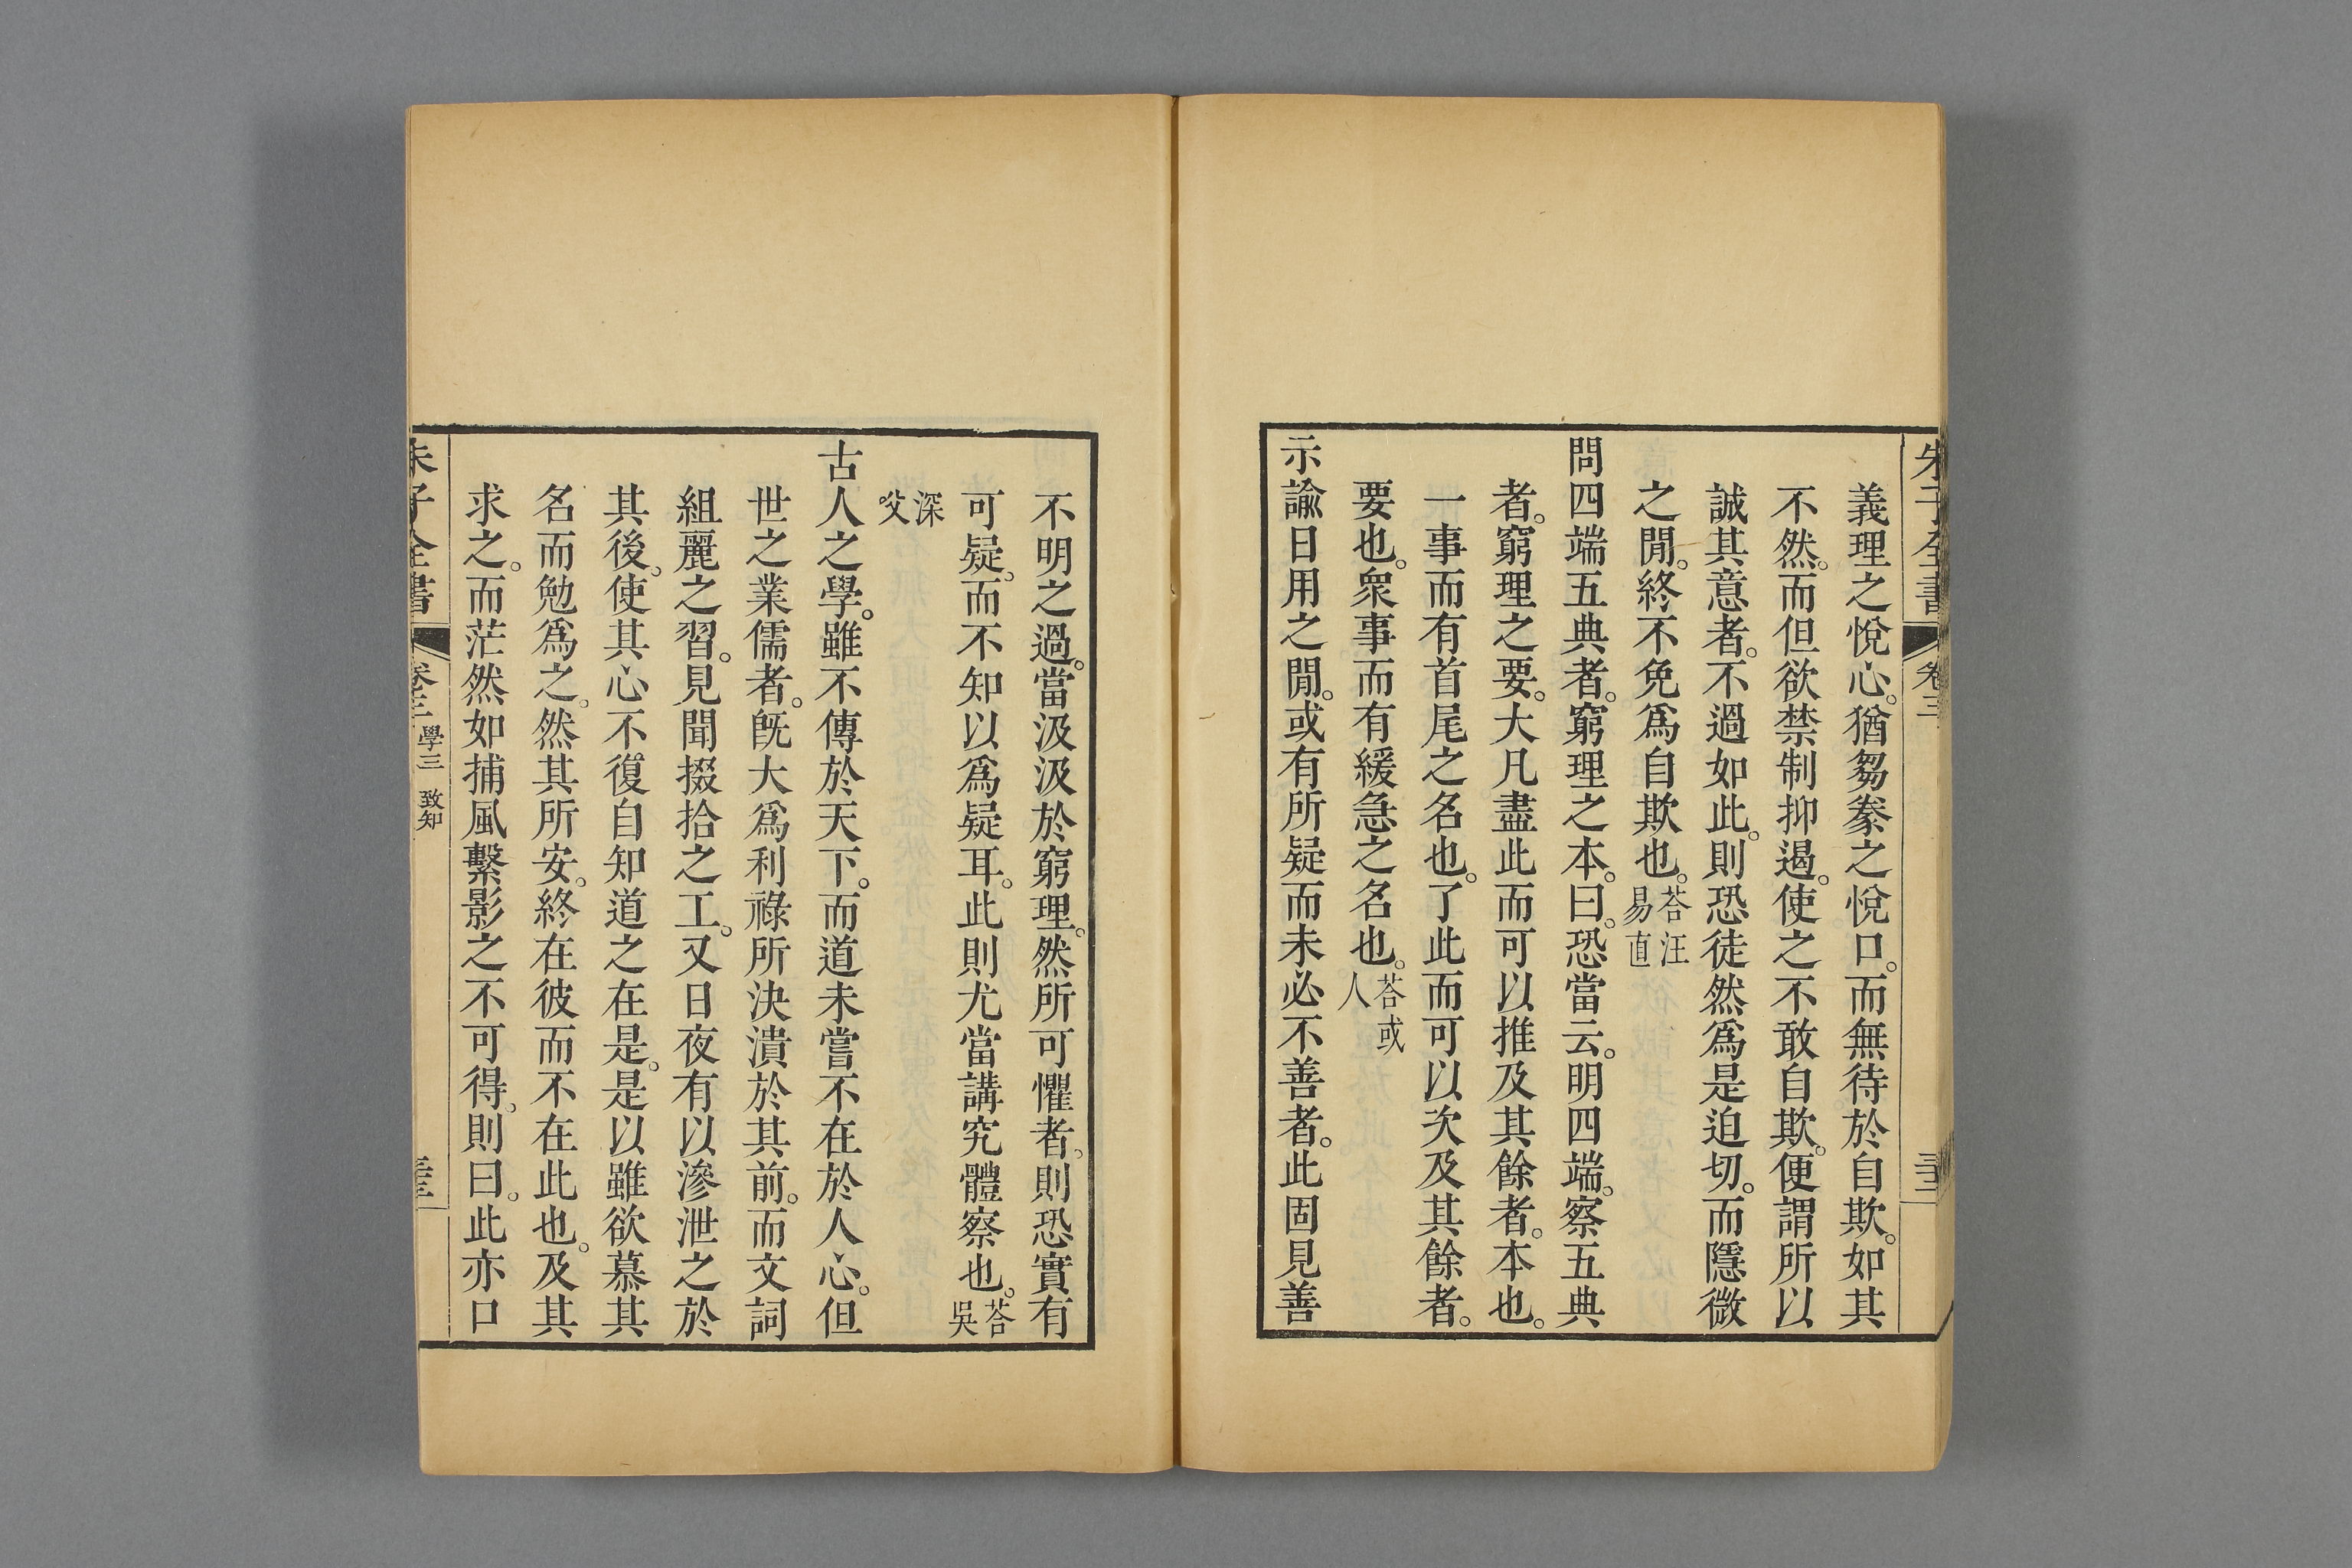 朱子全書 卷三
義理之悅心。猶芻豢之悅口。而無待於自欺。如其
不然。而但欲禁制抑遏。使之不敢自欺。便謂所以
誠其意者。不過如此。則恐徒然爲是迫切。而隱微
之閒。終不免爲自欺也。荅汪易直
問四端五典者。窮理之本。曰。恐當云。明四端。察五典
者。窮理之要。大凡盡此而可以推及其餘者。本也。
一事而有首尾之名也。了此而可以次及其餘者。
要也。衆事而有緩急之名也。荅或人
示諭日用之閒。或有所疑而未必不善者。此固見善
不明之過。當汲汲於窮理。然所可懼者。則恐實有
可疑。而不知以爲疑耳。此則尤當講究體察也。荅吳
深父
古人之學。雖不傳於天下。而道未嘗不在於人心。但
世之業儒者。旣大爲利祿所決潰於其前。而文詞
組麗之習。見聞掇拾之工。又日夜有以滲泄之於
其後。使其心不復自知道之在是。是以雖欲慕其
名而勉爲之。然其所安。終在彼而不在此也。及其
求之。而茫然如捕風繫影之不可得。則曰。此亦口
朱子全書 卷三 學三 致知